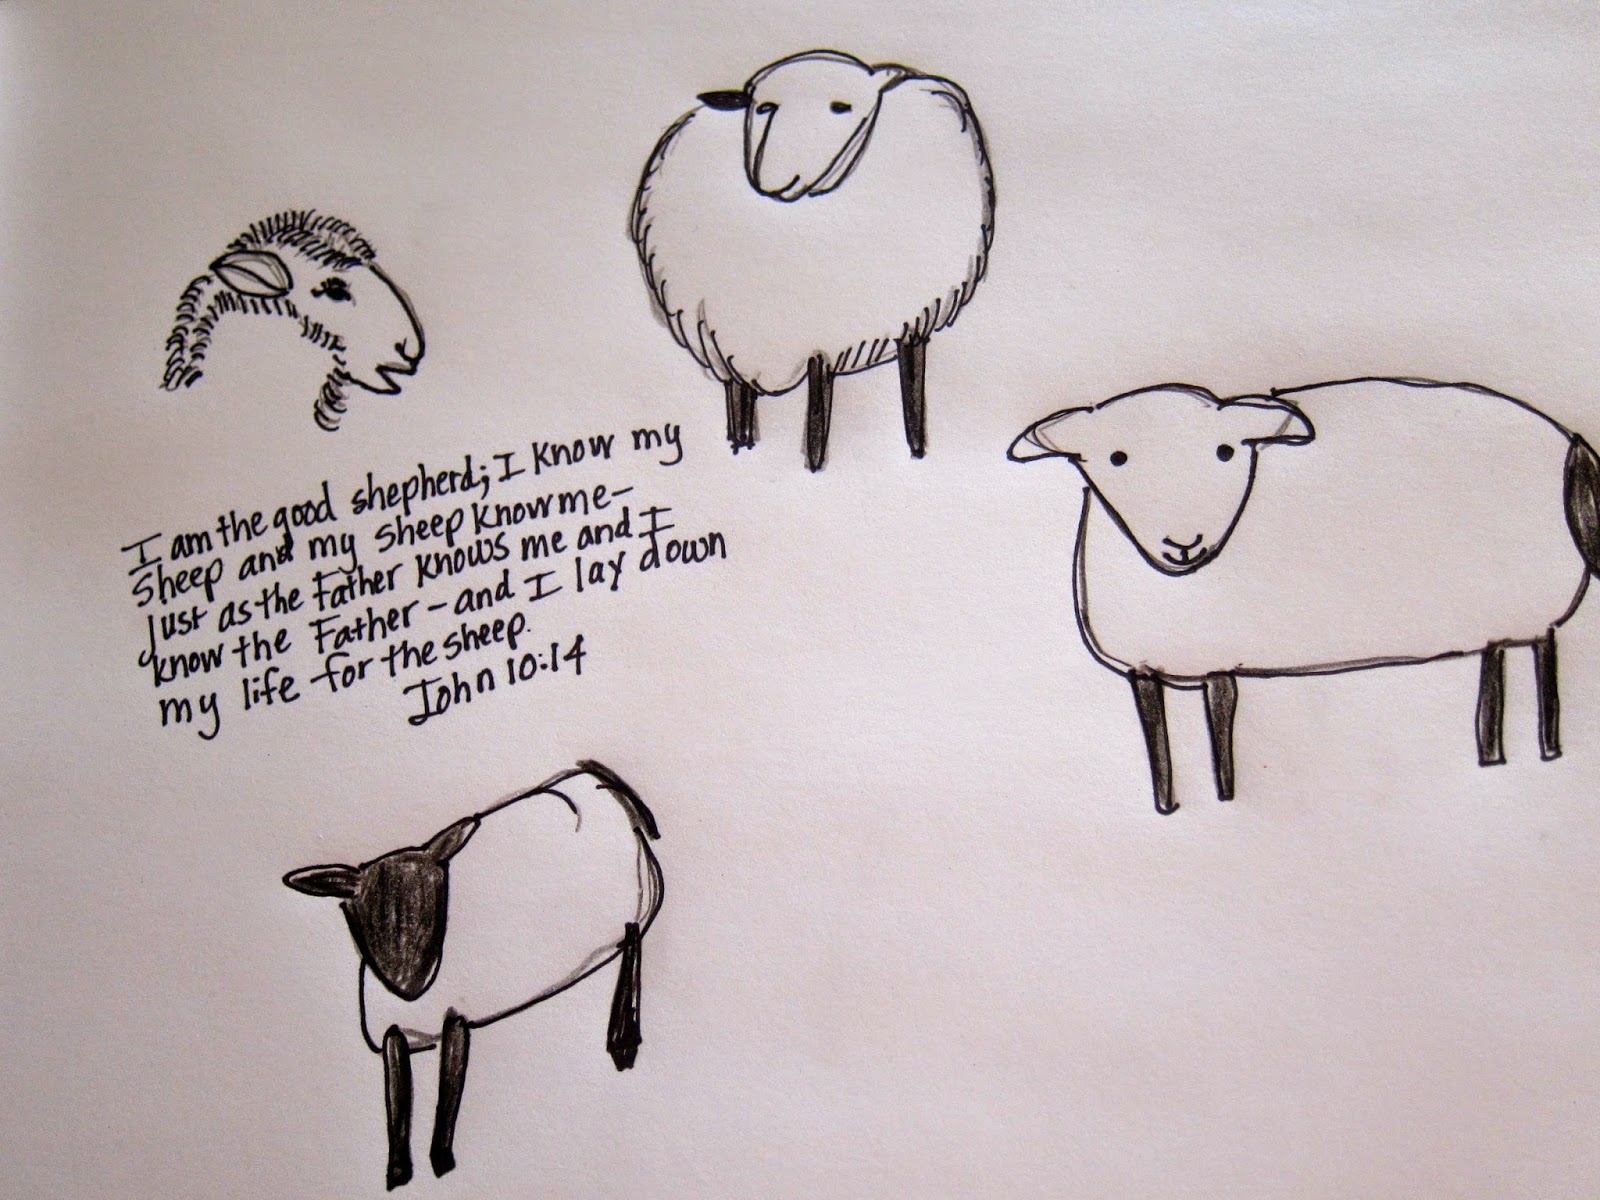 I am the good shepherd; I know my
sheep and my sheep know me-
just as the Father knows me and I
know the Father - and I lay down
my life for the sheep.
John 10:14